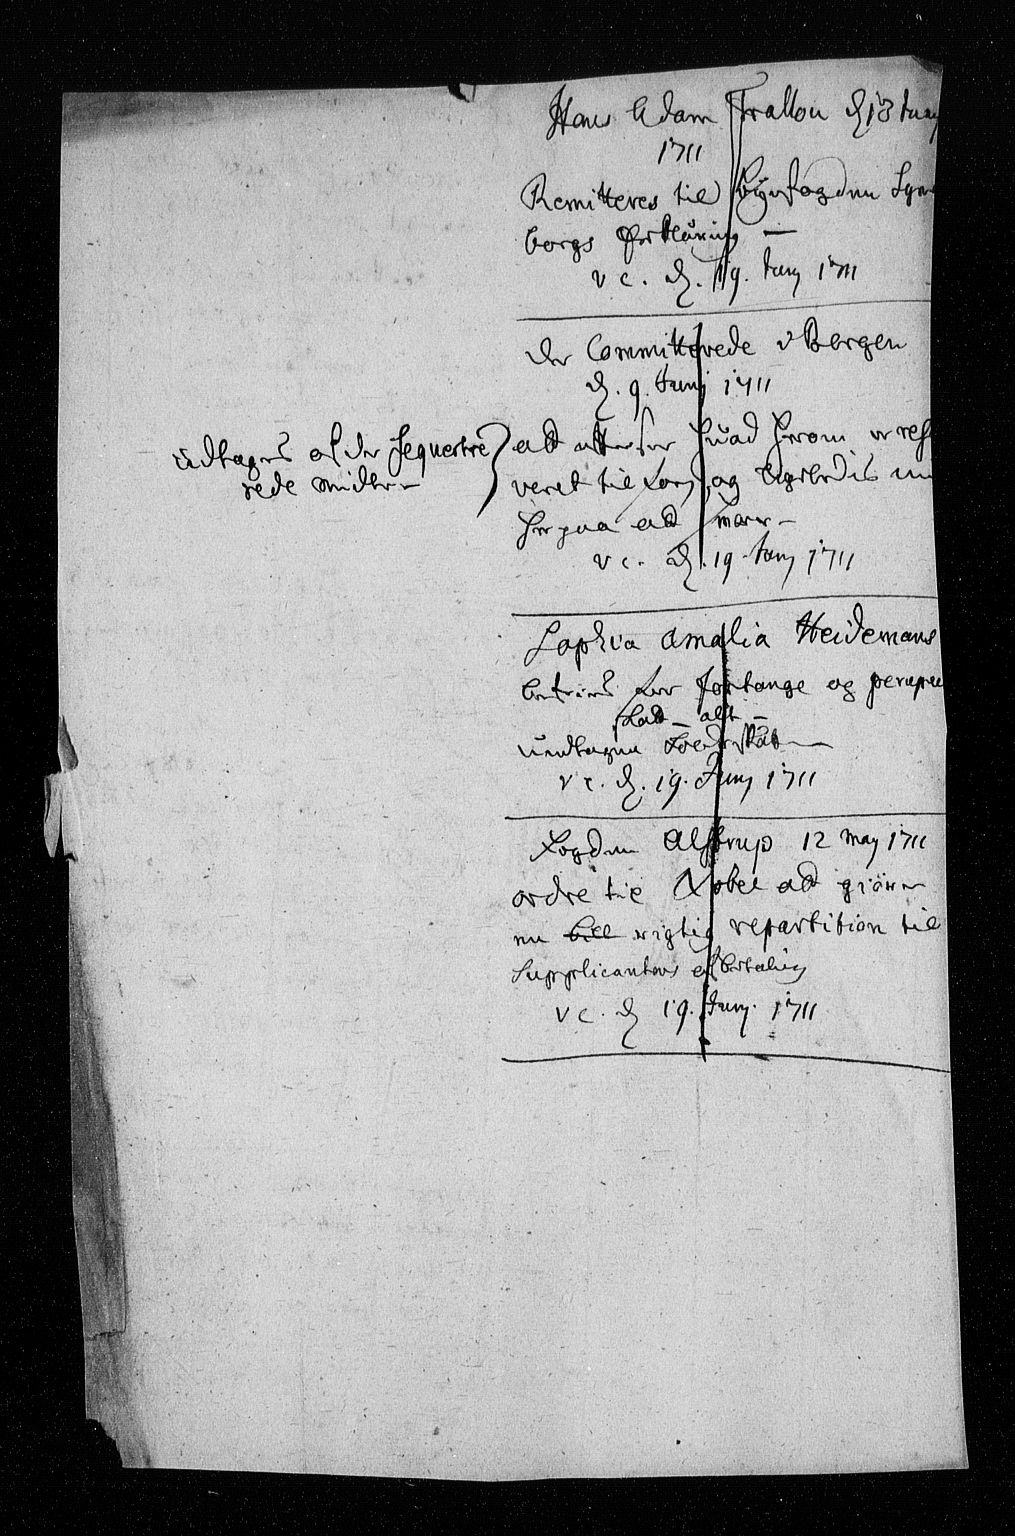 Hans Adam Frallou d. 13 Juny
1711
Remitteres til Byefogden
borgs Erklæring —
v c. d. 19. Juny 1711
der Committerede i Bergen
d. 9. Junj 1711
udtages af der Sequestre
rede midler
att efterser huad herom er
veret til og
her paa att
v c. d. 19. Juny 1711
Sophia Amalia Heidemans
befries for fortange og
Skatt — alt —
undtagen
v c. d. 19. Juny 1711
Fogden Alstrup 12 May 1711
ordre til Nobel att giøre
en bill rigtig repartition til
Supplicantens betaling
v c. d 19. Juny. 1711